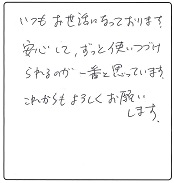 いつもお世話になっております。
安心して、ずっと使いつづけ
られるのが一番と思っています。
これからもよろしくお願い
します。